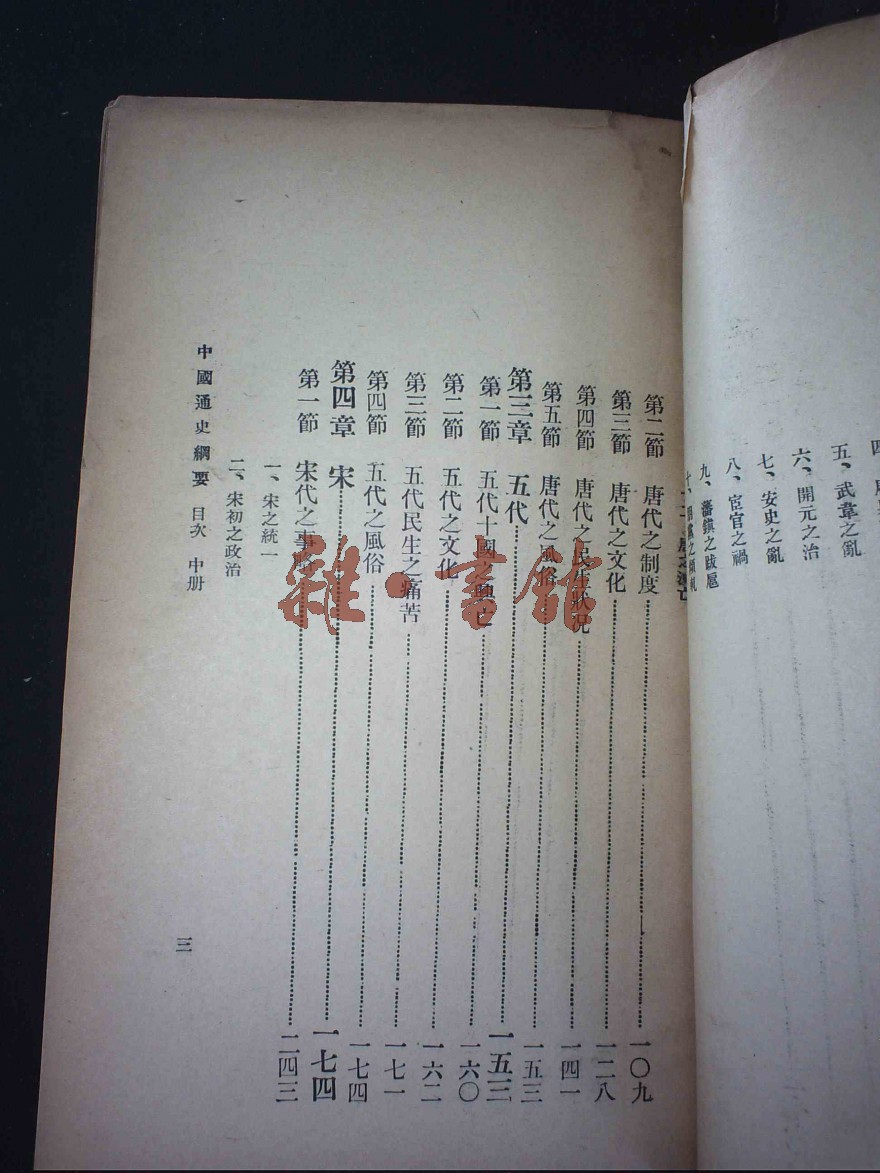 五、武韋之亂
六、開元之治
七、安史之亂
八、宦官之禍
九、藩鎮之跋扈
十、朋黨之傾軋
第二節 唐代之制度……一〇九
第三節 唐代之文化……一二八
第四節 唐代之民生狀況……一四一
第五節 唐代之風俗……一五三
第三章 五代……一五三
第一節 五代十國之興亡……一六〇
第二節 五代之文化……一六二
第三節 五代民生之痛苦……一七一
第四節 五代之風俗……一七四
第四章 宋……一七四
第一節 宋代之事略……二四三
一、宋之統一
二、宋初之政治
中國通史綱要 目次 中册
三
雜·書館